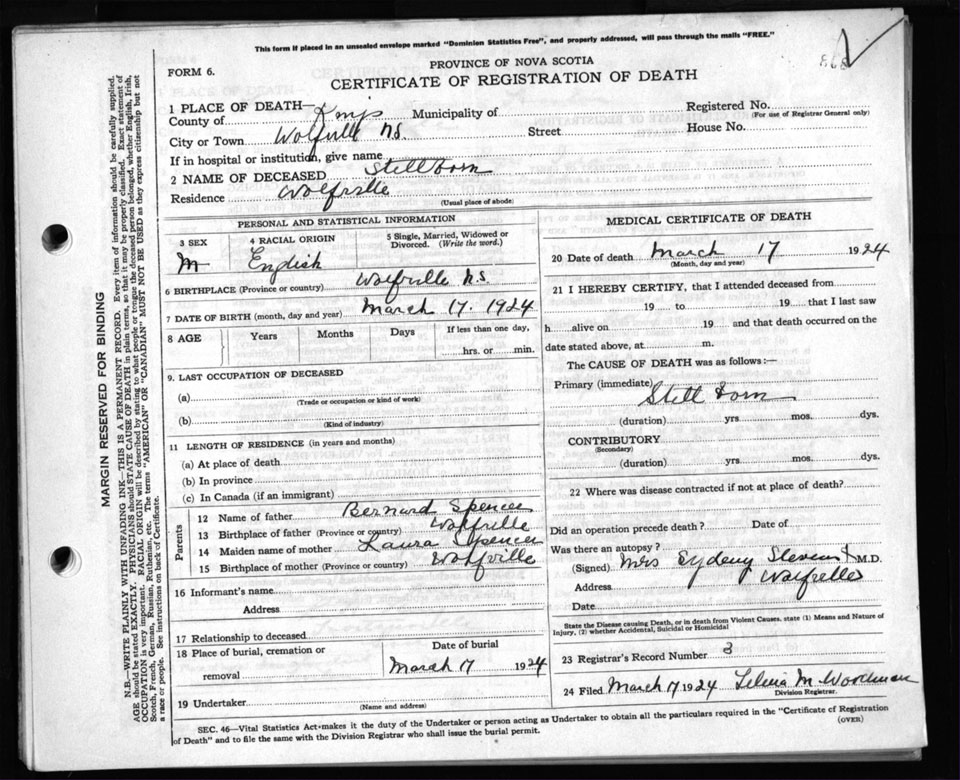 This form if placed in an unsealed envelope marked "Dominion Statistics Free", and properly addressed, will pass through the mails "FREE."
FORM 6.
PROVINCE OF NOVA SCOTIA
CERTIFICATE OF REGISTRATION OF DEATH
1 PLACE OF DEATH—
County of Kings Municipality of Registered No.
(For use of Registrar General only)
City or Town Wolfville N.S. Street House No.
If in hospital or institution, give name
2 NAME OF DECEASED Stillborn
Residence Wolfville
(Usual place of abode)
PERSONAL AND STATISTICAL INFORMATION
3 SEX 4 RACIAL ORIGIN 5 Single, Married, Widowed or Divorced. (Write the word.)
M English
6 BIRTHPLACE (Province or country) Wolfville N.S.
7 DATE OF BIRTH (month, day and year) March 17. 1924
8 AGE Years Months Days If less than one day,
hrs. or min.
9. LAST OCCUPATION OF DECEASED
(a)
(Trade or occupation or kind of work)
(b)
(Kind of industry)
11 LENGTH OF RESIDENCE (in years and months)
(a) At place of death
(b) In province
(c) In Canada (if an immigrant)
Parents
12 Name of father Bernard Spencer
13 Birthplace of father (Province or country) Wolfville
14 Maiden name of mother Laura Spencer
15 Birthplace of mother (Province or country) Wolfville
16 Informant's name
Address
17 Relationship to deceased
18 Place of burial, cremation or removal Date of burial
March 17 1924
19 Undertaker
(Name and address)
MEDICAL CERTIFICATE OF DEATH
20 Date of death March 17 1924
(Month, day and year)
21 I HEREBY CERTIFY, that I attended deceased from
19 to 19 that I last saw
h alive on 19 and that death occurred on the
date stated above, at m.
The CAUSE OF DEATH was as follows:—
Primary (immediate) Still born
(duration) yrs. mos. dys.
CONTRIBUTORY
(Secondary)
(duration) yrs. mos. dys.
22 Where was disease contracted if not at place of death?
Did an operation precede death? Date of
Was there an autopsy?
(Signed) Mrs Sydeny Stevens M.D.
Address Wolfville
Date
State the Disease causing Death, or in death from Violent Causes, state (1) Means and Nature of Injury, (2) whether Accidental, Suicidal or Homicidal
23 Registrar's Record Number 3
24 Filed March 17 1924 M. Woodman
Division Registrar.
SEC. 46—Vital Statistics Act makes it the duty of the Undertaker or person acting as Undertaker to obtain all the particulars required in the "Certificate of Registration
of Death" and to file the same with the Division Registrar who shall issue the burial permit.
(OVER)
MARGIN RESERVED FOR BINDING
N.B.—WRITE PLAINLY WITH UNFADING INK—THIS IS A PERMANENT RECORD. Every item of information should be carefully supplied.
AGE should be stated EXACTLY. PHYSICIANS should STATE CAUSE OF DEATH in plain terms, so that it may be properly classified. Exact statement of
OCCUPATION is very important. RACIAL ORIGIN will be described by stating to what people or tongue the deceased person belonged, whether English, Irish,
Scotch, French, German, Russian, Ruthenian, etc. The terms "AMERICAN" or "CANADIAN" MUST NOT BE USED as they express citizenship but not
a race or people. See instructions on back of Certificate.